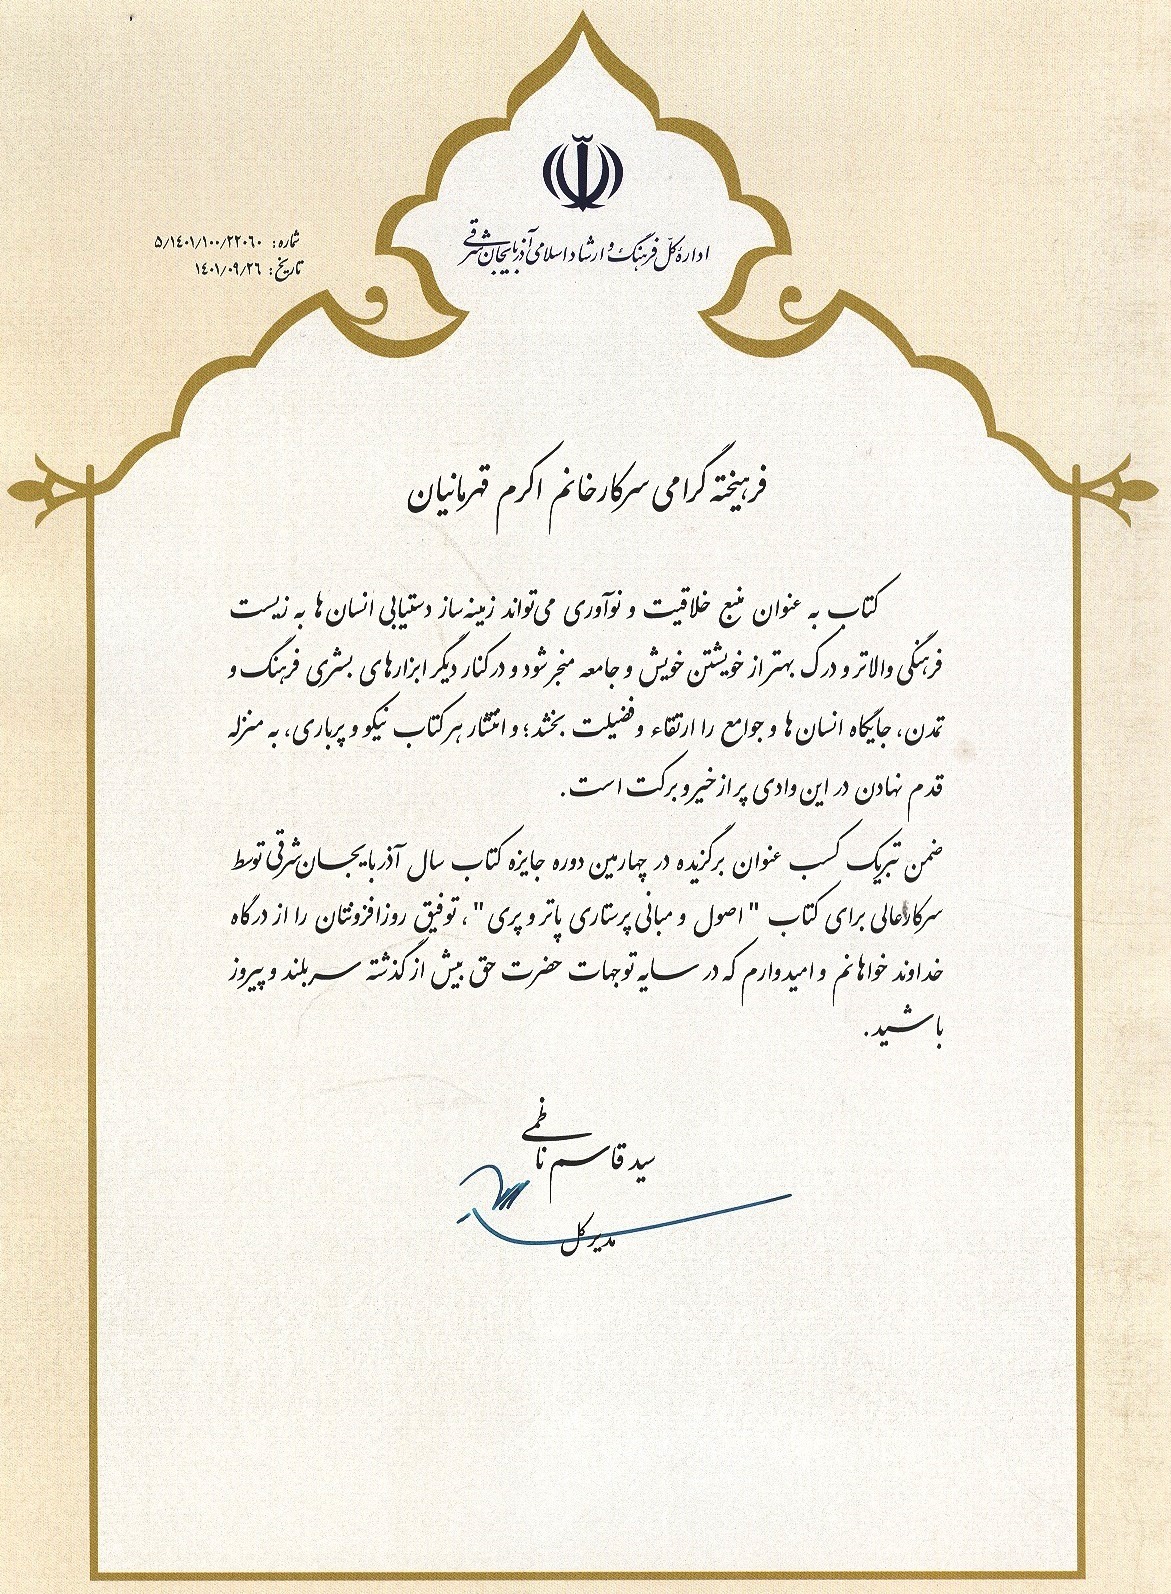 اداره کل فرهنگ و ارشاد اسلامی آذربایجان شرقی
شماره: ۵/۱۴۰۱/۱۰۰/۲۲۰۶۰
تاریخ: ۱۴۰۱/۰۹/۲۶
فرهیخته گرامی سرکارخانم اکرم قهرمانیان
کتاب به عنوان منبع خلاقیت و نوآوری می‌تواند زمینه‌ساز دستیابی انسان ها به زیست
فرهنگی والاتر و درک بهتر از خویشتن خویش و جامعه منجر شود و در کنار دیگر ابزارهای بشری فرهنگ و
تمدن، جایگاه انسان ها و جوامع را ارتقاء و فضیلت بخشد؛ و انتشار هر کتاب نیکو و پرباری، به منزله
قدم نهادن در این وادی پر از خیر و برکت است.
ضمن تبریک کسب عنوان برگزیده در چهارمین دوره جایزه کتاب سال آذربایجان‌شرقی توسط
سرکارعالی برای کتاب " اصول و مبانی پرستاری پاتر و پری "، توفیق روزافزونتان را از درگاه
خداوند خواهانم و امیدوارم که در سایه توجهات حضرت حق بیش از گذشته سربلند و پیروز
باشید.
سید قاسم ناظمی
مدیر کل